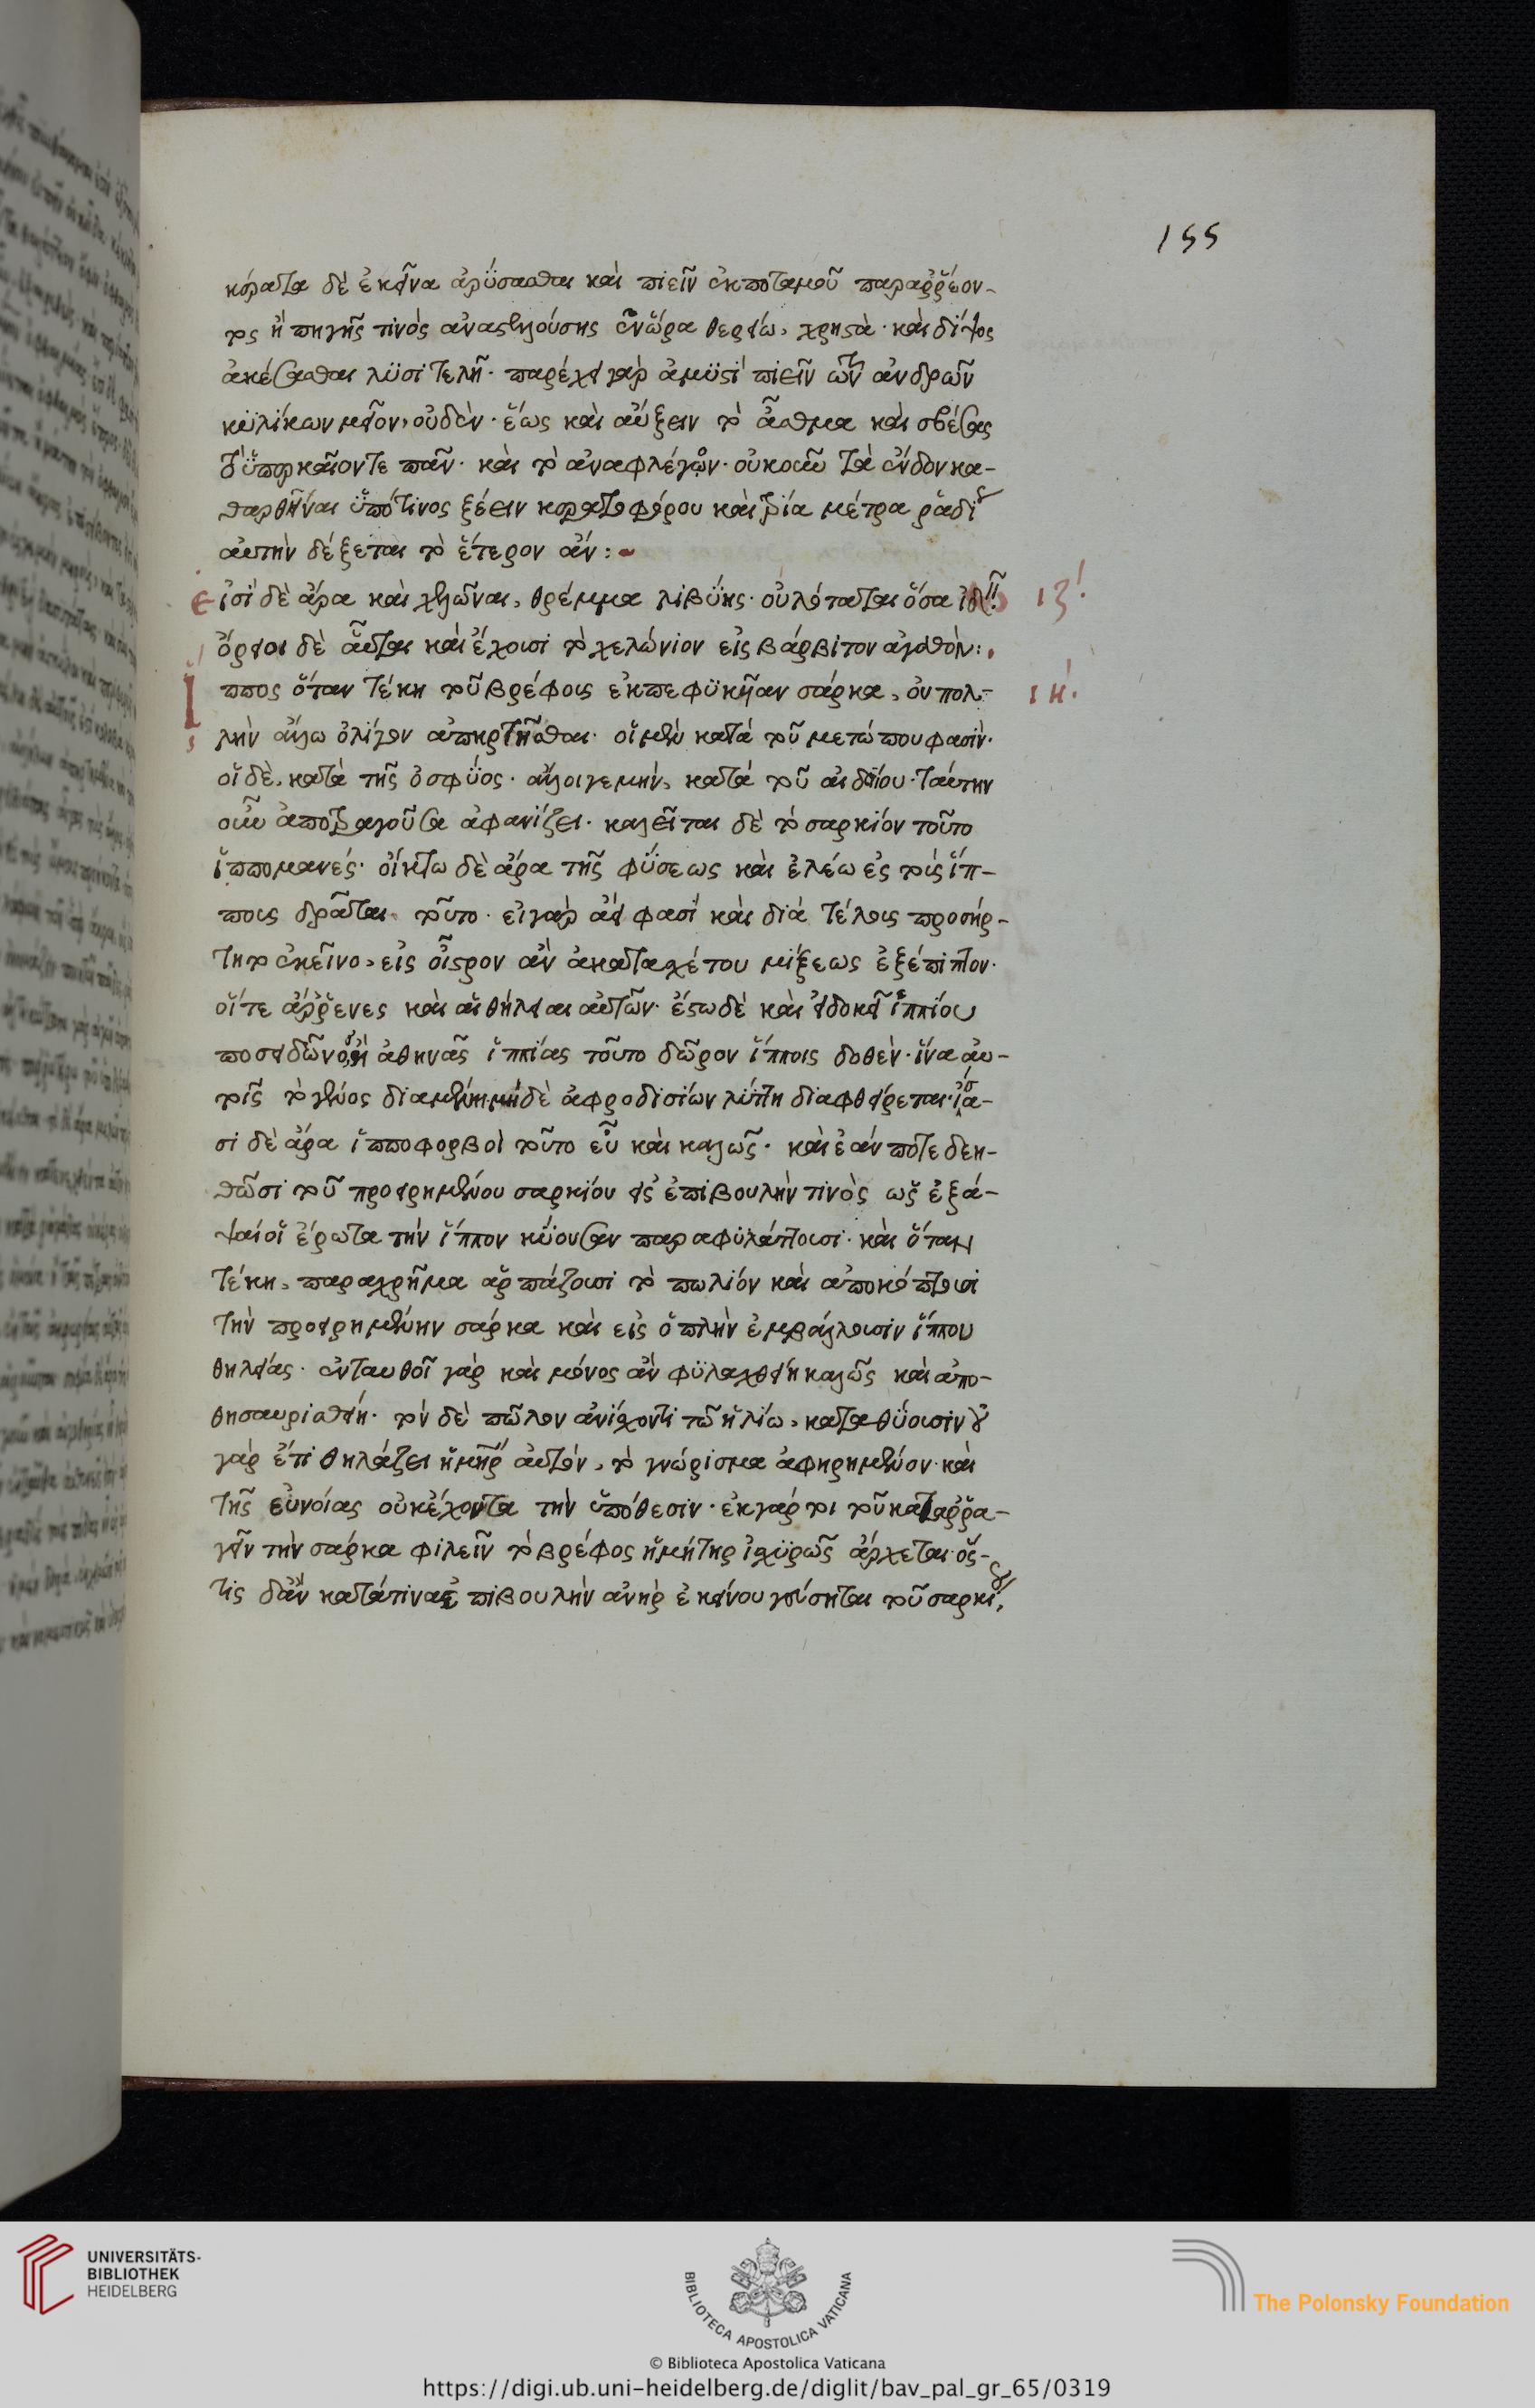 155
κέρατα δὲ ἐκεῖνα ἀρύσασθαι καὶ πιεῖν ἐκ ποταμοῦ παραῤῥέον-
τος ἢ πηγῆς τινὸς ἀναβλυούσης ἐν ὥρα θερείω, χρηστὰ· καὶ δίψος
ἀκέσασθαι λυσιτελῆ· παρέχει γὰρ ἀμυστὶ πιεῖν ἀνδρῶν
κυλίκων μεῖον, οὐδὲν· ἕως καὶ αὔξειν τὸ ἆσθμα καὶ σβέσαι
τὸ ὑπερκαῖον τε πᾶν· καὶ τὸ ἀναφλέγον· οὐκοῦν τὰ ἔνδον κα-
θαρθῆναι ὑπό τινος ξέειν κερατοφόρου καὶ τρία μέτρα ῥαδί
αὐτὴν δέξεται τὸ ἕτερον ἄν:
εἰσὶ δὲ ἄρα καὶ χελῶναι, θρέμμα λιβύης· ὅσα ἰδεῖν· ιζ΄
ὄρειοι δὲ αὗται καὶ ἔχουσι τὸ χελώνιον εἰς βάρβιτον ἀγαθὸν:
ἵππος ὅταν τέκη τοῦ βρέφους ἐκπεφυκῆαν σάρκα, οὐ πολ- ιη΄.
λὴν ἀλλ' ὀλίγον ἀπηρτῆσθαι· οἱ μὲν κατὰ τοῦ μετώπου φασὶν·
οἱ δὲ, κατὰ τῆς ὀσφύος· ἄλλοι γε μὴν, κατὰ τοῦ αἰδοίου· ταύτην
οὖν ἀποτραγοῦσα ἀφανίζει· καλεῖται δὲ τὸ σαρκίον τοῦτο
ἱππομανές· οἴκτω δὲ ἄρα τῆς φύσεως καὶ ἐλέω ἐς τοὺς ἵπ-
πους δρᾶται τοῦτο· εἰ γὰρ ἀεί φασὶ καὶ διὰ τέλους προσήρ-
τητο ἐκεῖνο, εἰς οἶστρον ἂν ἀκατασχέτου μίξεως ἐξέπιπτον·
οἵ τε ἄῤῥενες καὶ αἱ θήλειαι αὐτῶν· ἔστω δὲ καὶ εἰ δοκεῖ ἱππίου
ποσειδῶνος ἢ ἀθηνᾶς ἱππίας τοῦτο δῶρον ἵπποις δοθὲν· ἵνα αὐ-
τοῖς τὸ γένος διαμένη μηδὲ ἀφροδισίων λύττη διαφθείρεται· ἴσα-
σι δὲ ἄρα ἱπποφορβοὶ τοῦτο εὖ καὶ καλῶς· καὶ ἐάν ποτε δεη-
θῶσι τοῦ προειρημένου σαρκίου εἰς ἐπιβουλήν τινὸς ὡς ἐξά-
ψαί οἱ ἔρωτα τὴν ἵππον κύουσαν παραφυλάττουσι· καὶ ὅταν
τέκη, παραχρῆμα ἁρπάζουσι τὸ πωλίον καὶ ἀποκόπτουσι
τὴν προειρημένην σάρκα καὶ εἰς ὁπλὴν ἐμβάλλουσιν ἵππου
θηλείας· ἐνταυθοῖ γὰρ καὶ μόνος ἂν φυλαχθείη καλῶς καὶ ἀπο-
θησαυρισθείη· τὸν δὲ πῶλον ἀνίσχοντι τῶ ἡλίω, καταθύουσιν οὐ
γὰρ ἔτι θηλάζει ἡ μήτηρ αὐτὸν, τὸ γνώρισμα ἀφηρημένον· καὶ
τῆς εὐνοίας οὐκ ἔχοντα τὴν ὑπόθεσιν· ἐκ γάρ τοι τοῦ καταῤῥα-
γεῖν τὴν σάρκα φιλεῖν τὸ βρέφος ἡ μήτηρ ἰσχυρῶς ἄρχεται· ὅς-
τις δ' ἂν κατά τινα ἐπιβουλὴν ἀνὴρ ἐκείνου γεύσηται τοῦ σαρκί,
UNIVERSITÄTS-
BIBLIOTHEK
HEIDELBERG
BIBLIOTECA APOSTOLICA VATICANA
The Polonsky Foundation
© Biblioteca Apostolica Vaticana
https://digi.ub.uni-heidelberg.de/diglit/bav_pal_gr_65/0319